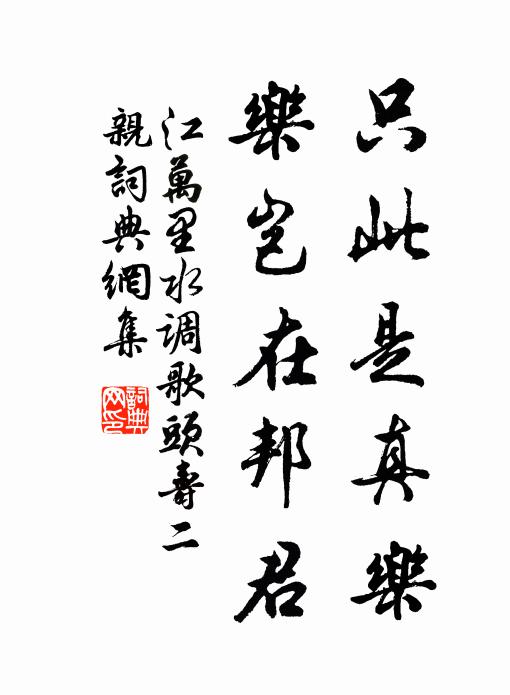 只此是真樂
樂豈在邦君
江萬里水调歌頭壽二
親詞典網集
詞典
网印